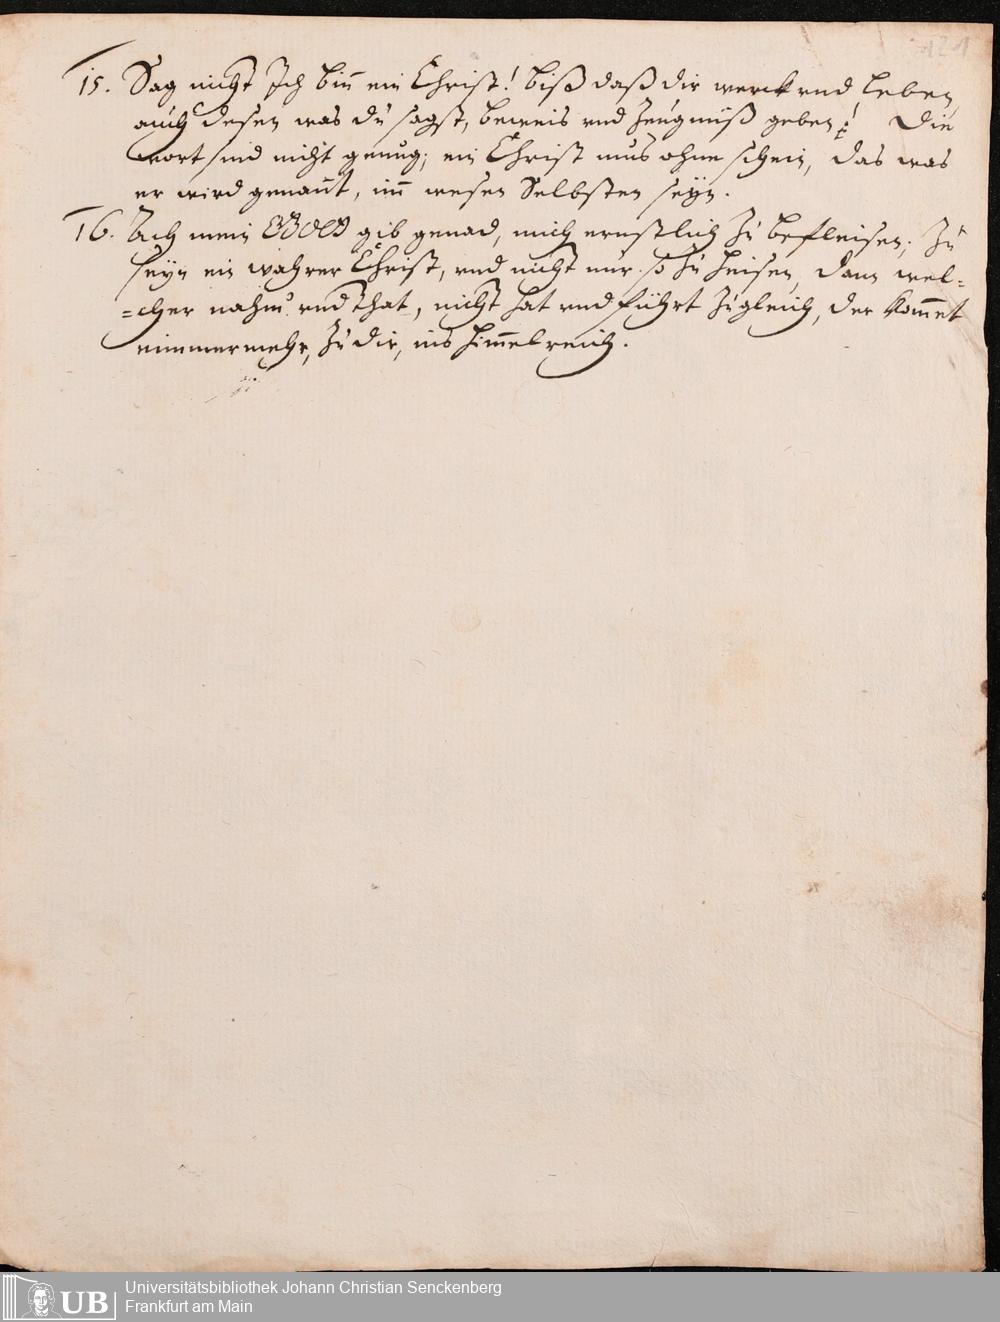 121
15. Sag nicht Ich bin̅ ein Christ! biß daß dir werck vnd leben,
auch desen was du sagst, beweis vnd Zeugnuß geben! Die
wort sind nicht genug; ein Christ mus ohne schein, das was
er wird genan̅t, im̅ wesen Selbsten seyn.
16. Ach mein GOtt gib genad, mich ernstlich Zu befleisen, Zu
seyn ein wahrer Christ, vnd nicht nur so Zu heisen, dann wel=
=cher nahm vnd that, nicht hat vnd führt Zugleich, der kom̅et
nimmermehr, Zu dir, ins Him̅elreich.
UB
Universitätsbibliothek Johann Christian Senckenberg
Frankfurt am Main